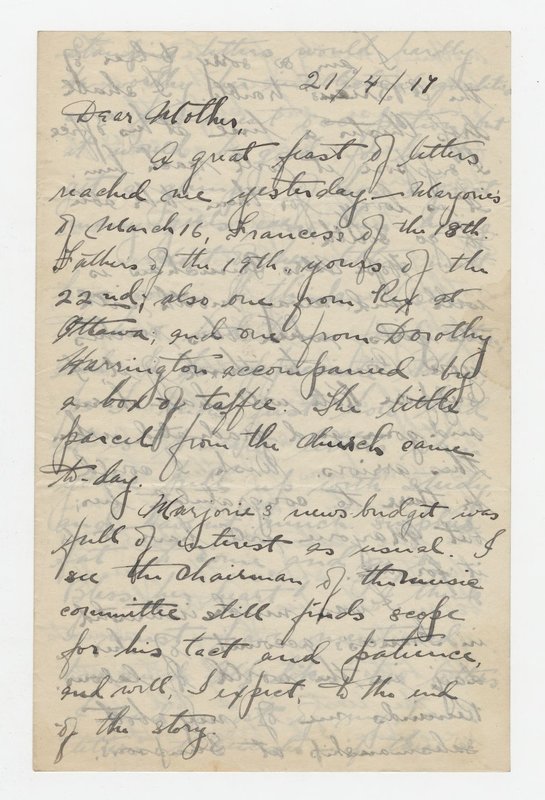 21/4/17
Dear Mother,
A great feast of letters
reached me yesterday - Marjorie's
of March 16, Frances's of the 18th.
Fathers of the 19th., yours of the
22nd; also one from Rex at
Ottawa; and one from Dorothy
Harrington accompanied by
a box of taffee. The little
parcel from the church came
to-day.
Marjorie's news budget was
full of interest as usual. I
see the Chairman of the music
committee still finds scope
for his tact and patience,
and will, I expect, to the end
of the story.